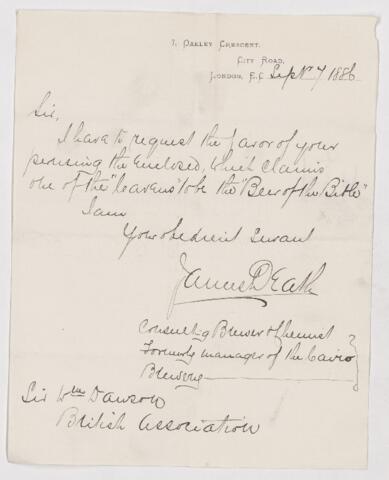 7, OAKLEY CRESCENT,
CITY ROAD,
LONDON, E.C. Septr 7 1886
Sir,
I have to request the favor of your
perusing the enclosed, which claims
one of the "leavens to be the "Beer of the Bible"
I am
Your obedient Servant
James Death
Consulting Brewer & Chemist
Formerly manager of the Cairo
Brewery
Sir Wm Dawson
British Association